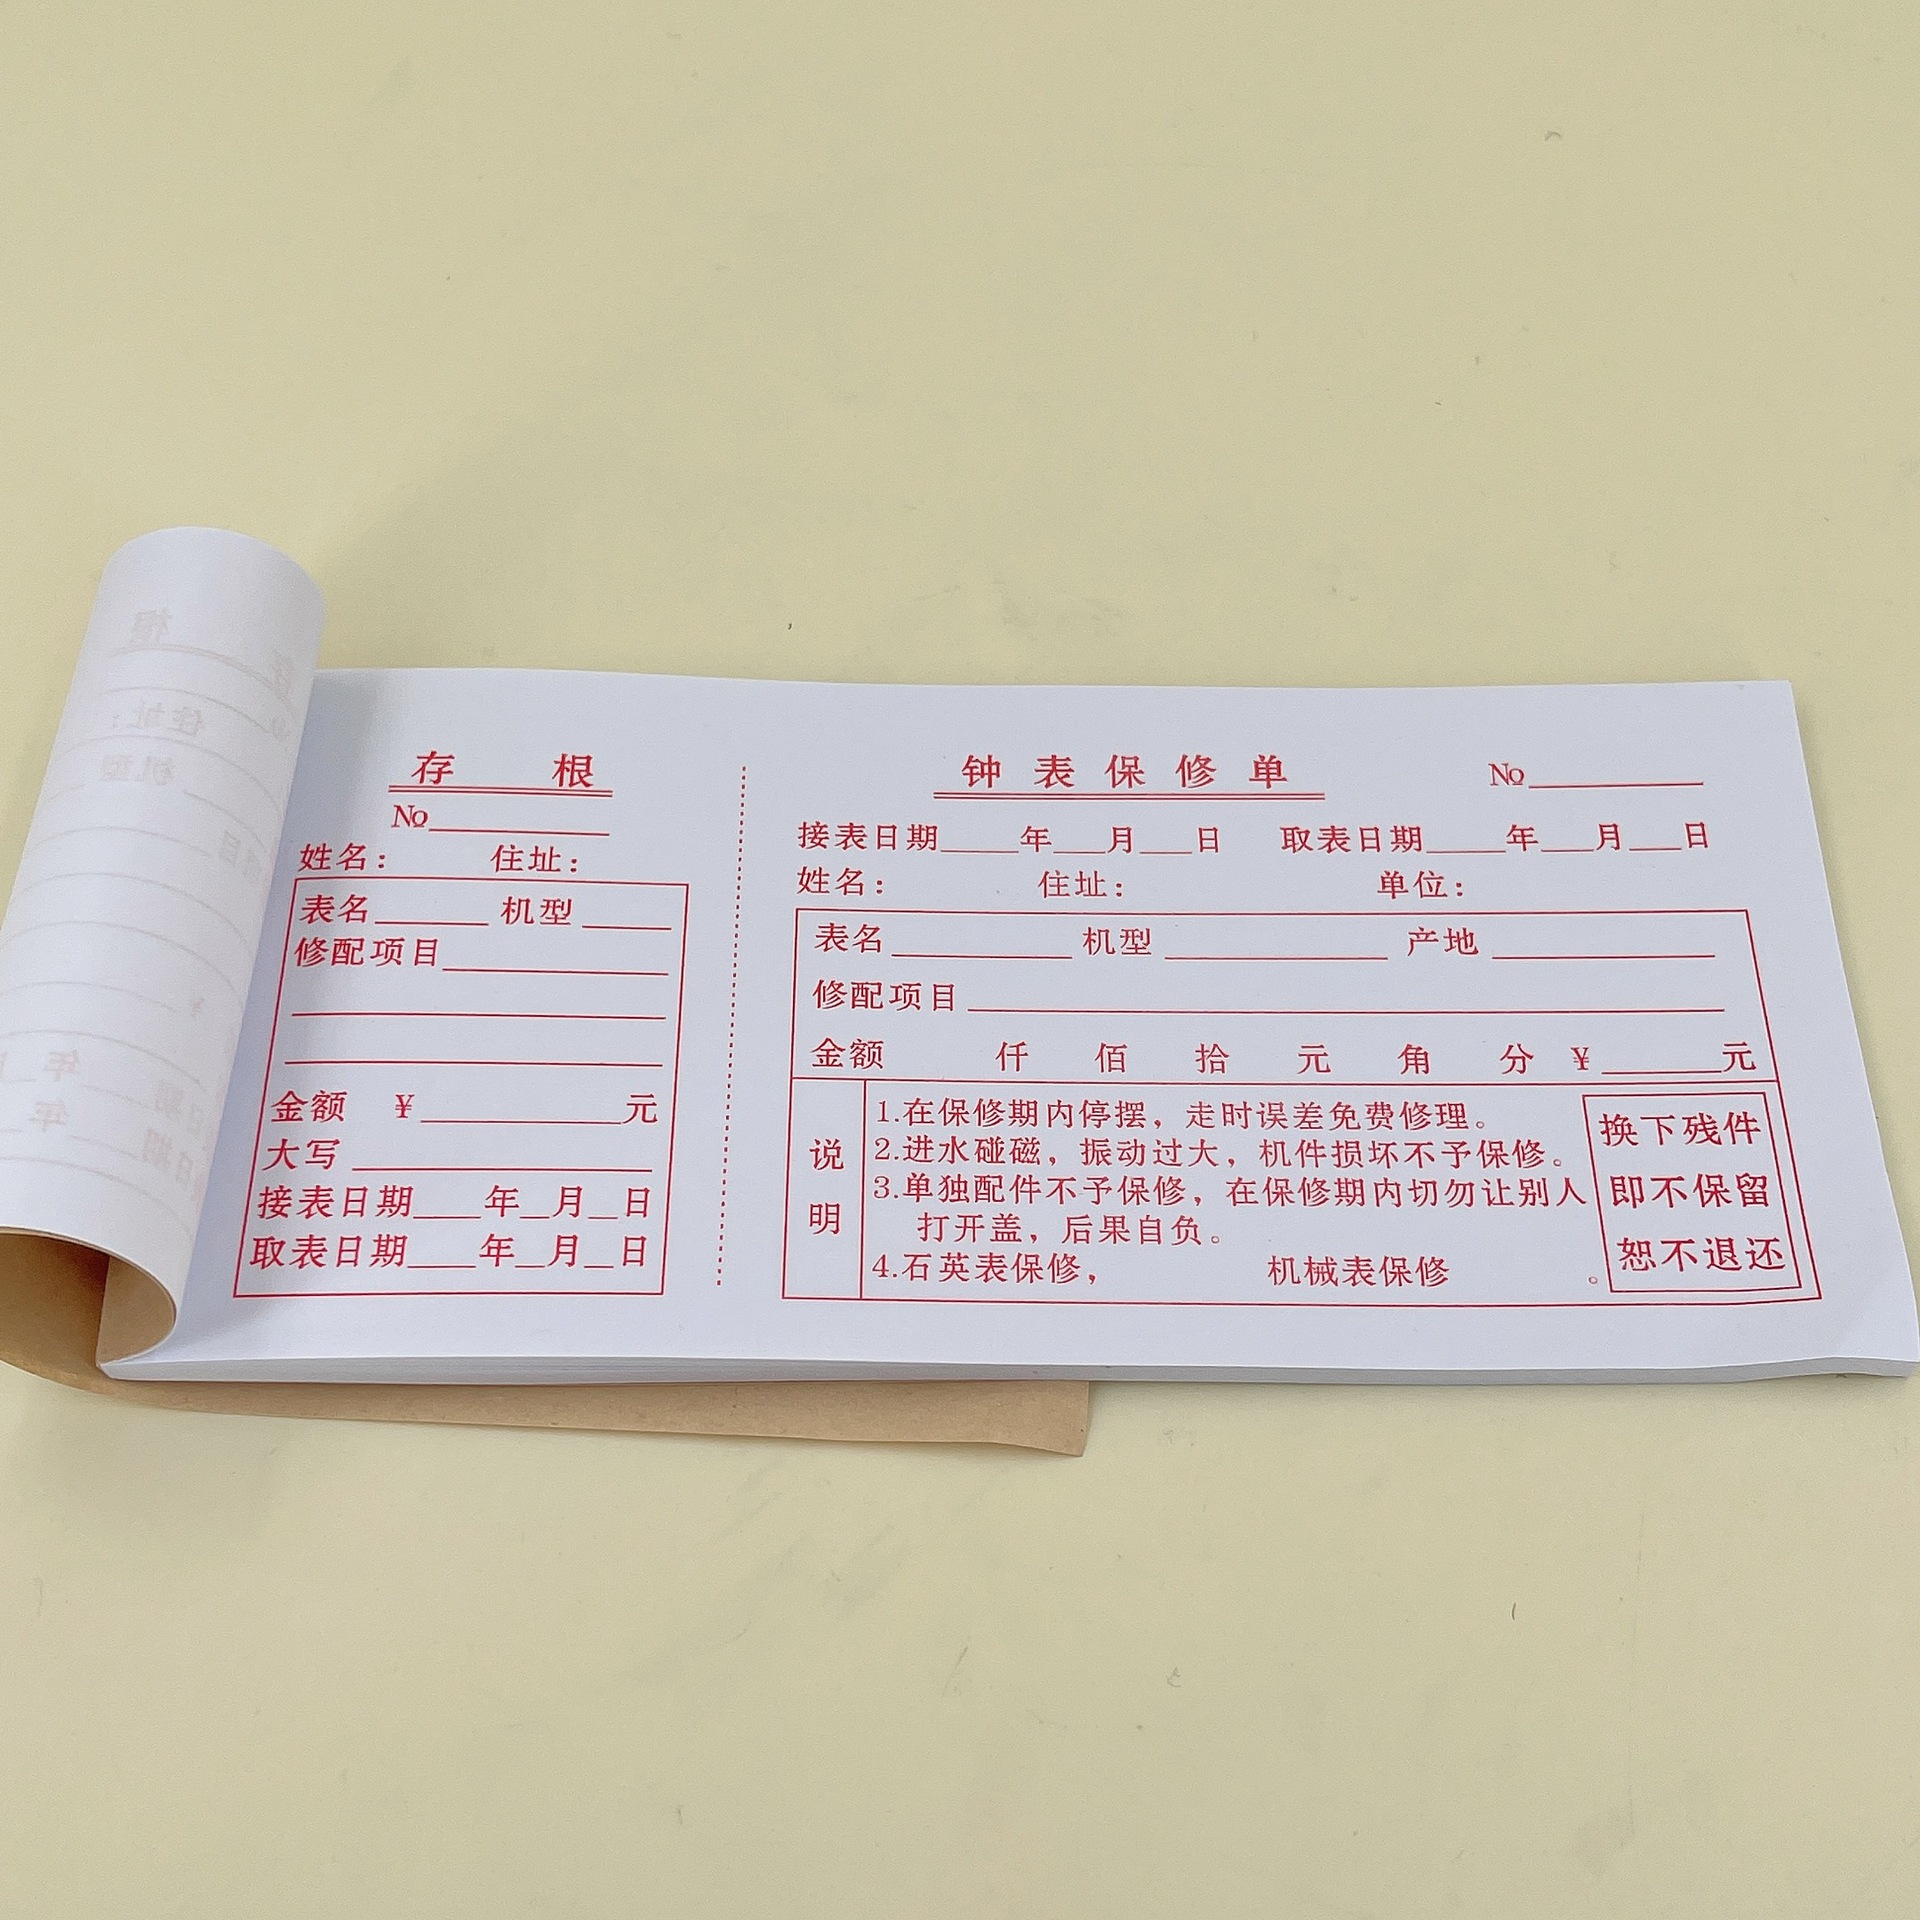 存 根
No
姓名： 住址：
表名 机型
修配项目
金额 ¥ 元
大写
接表日期 年 月 日
取表日期 年 月 日
钟表保修单 No
接表日期 年 月 日 取表日期 年 月 日
姓名： 住址： 单位：
表名 机型 产地
修配项目
金额 仟 佰 拾 元 角 分 ¥ 元
说明
1.在保修期内停摆，走时误差免费修理。
2.进水碰磁，振动过大，机件损坏不予保修。
3.单独配件不予保修，在保修期内切勿让别人
打开盖，后果自负。
4.石英表保修， 机械表保修 。
换下残件
即不保留
恕不退还